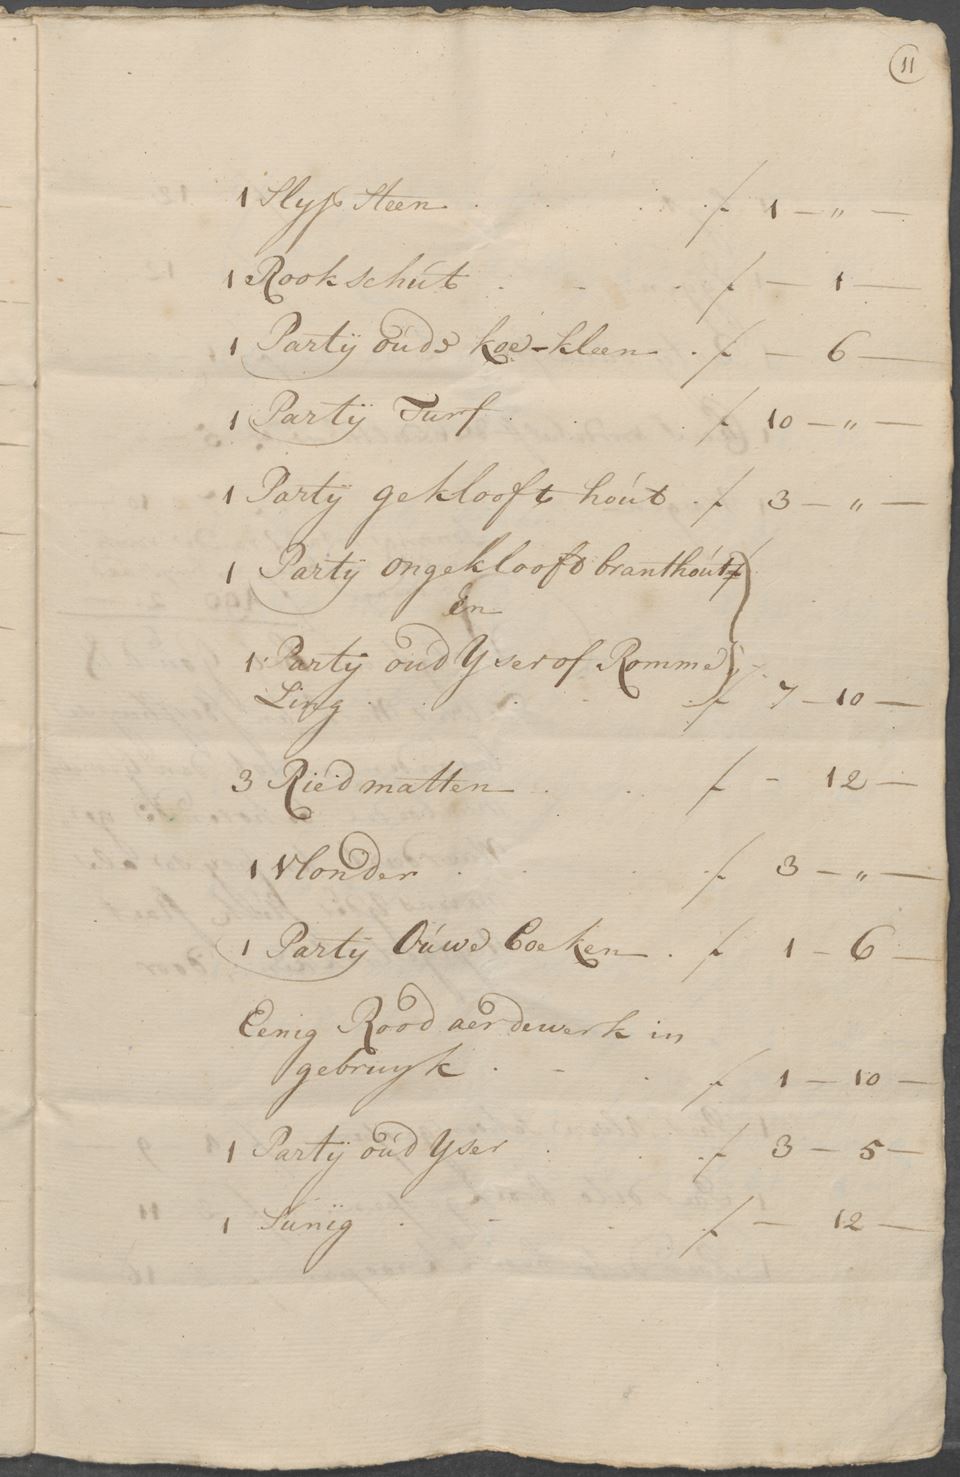 11
1 Slyp Steen . . . . f 1 - „ -
1 Rookschút . - . . f - 1 -
1 Partÿ oúde koe-kleen . f - 6 -
1 Partÿ Turf . . . f 10 - „ -
1 Partÿ geklooft hóut . f 3 - „ -
1 Partÿ ongeklooft branthóut
En
1 Partÿ oúd Yser of Romme
Ling . . . . f 7 - 10 -
3 Riedmatten . . f - 12 -
1 Vlonder . . . f 3 - „ -
1 Partÿ Oúwe Boeken . f 1 - 6 -
Eenig Rood aerdewerk in
gebruyk . - . f 1 - 10 -
1 Partÿ oúd Yser . . . f 3 - 5 -
1 . - . f - 12 -